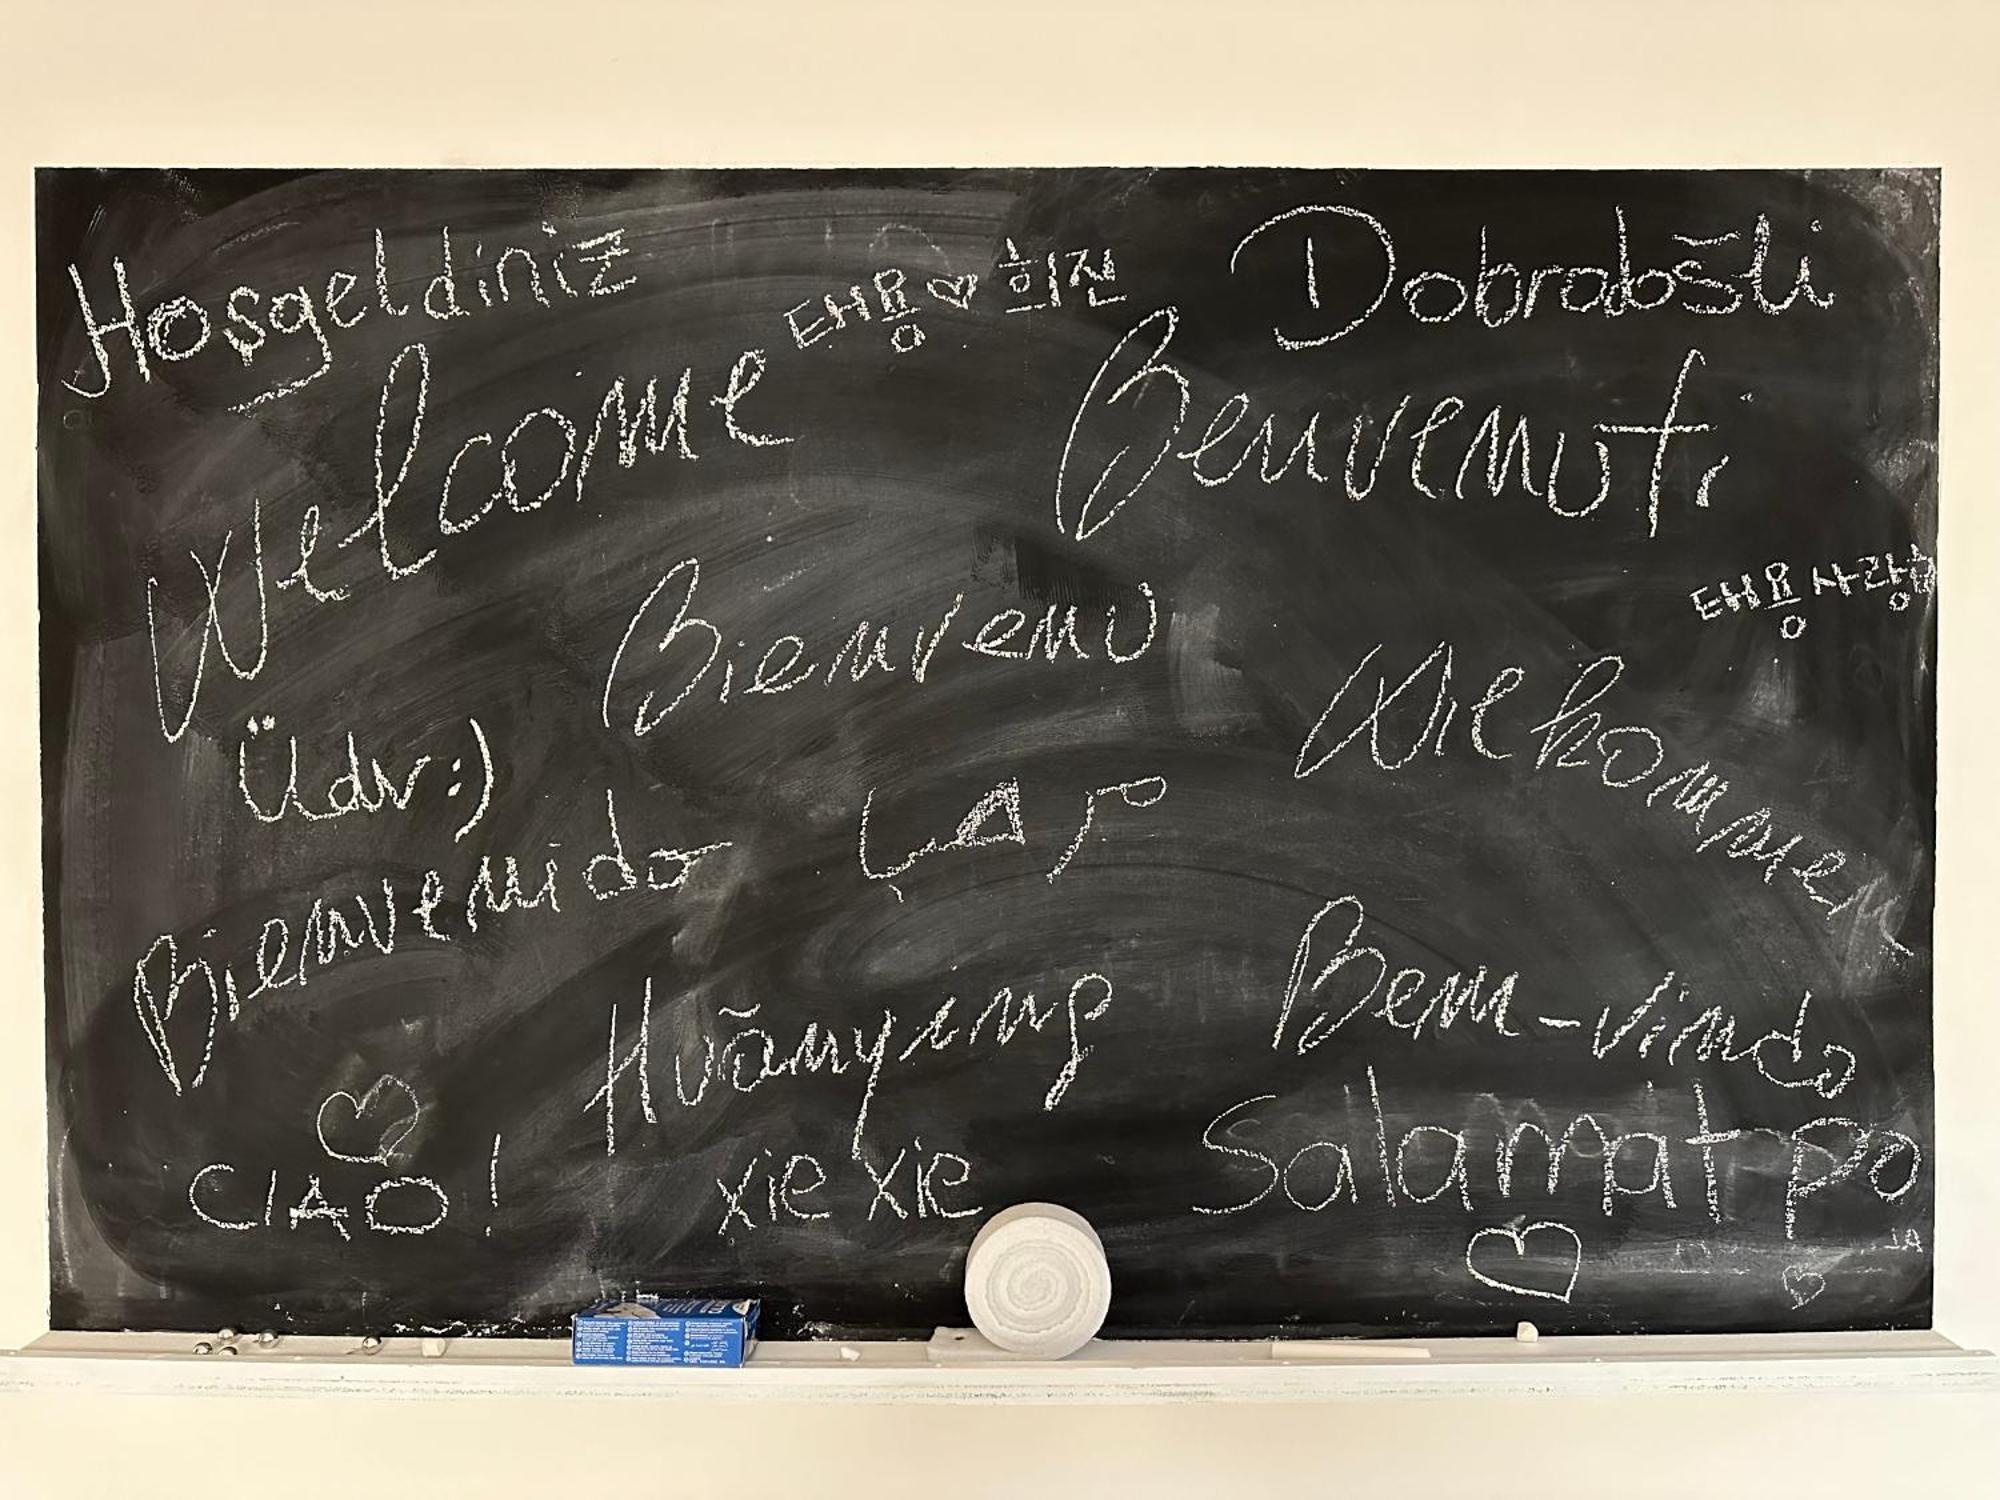 Hoşgeldiniz
태용♡희진
Dobrodošli
Welcome
Benvenuti
태용 사랑해
Bienvenu
Wilkommen
Üdv:)
Bienvenido
Bem-vindo
Huānying
CIAO!
xie xie
Salamat po